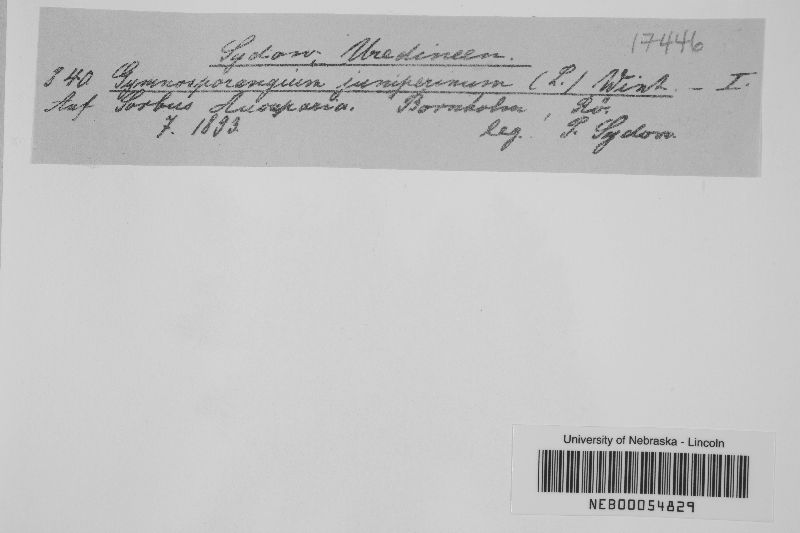 Sydow, Uredineen.
17446
340 Gymnosporangium juniperinum (L.) Wint. – I.
Auf Sorbus Aucuparia. Bornholm, Rö.
7. 1893. leg. P. Sydow.
University of Nebraska - Lincoln
NEB00054829